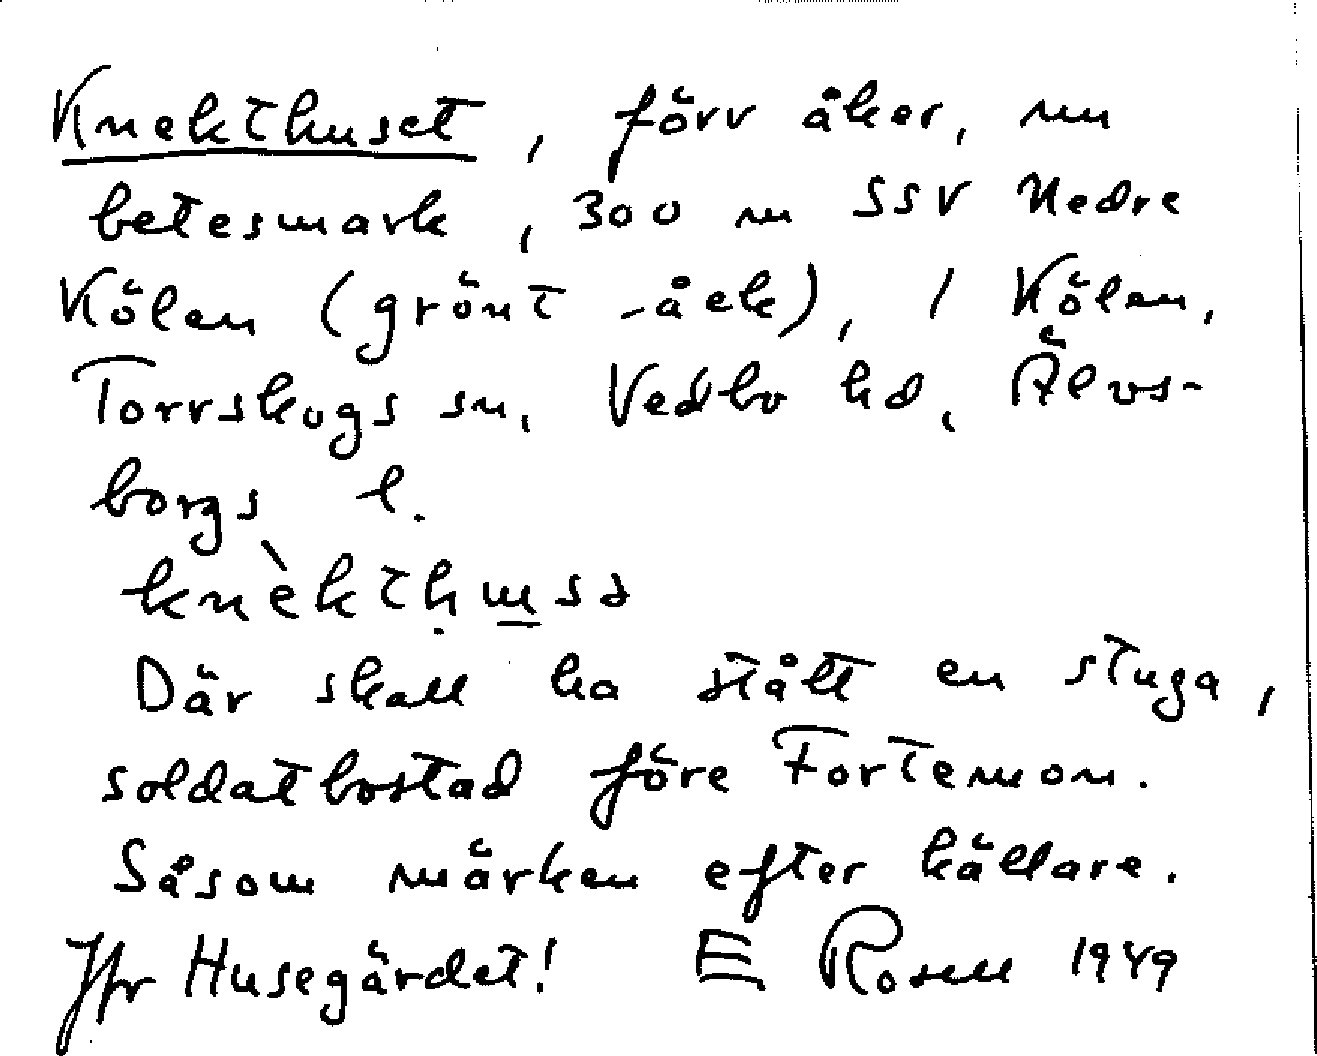 Knekthuset, förv åker, nu
betesmark, 300 m SSV Nedre
Kölen (grönt -åck), / Kölen,
Torrskogs sn, Vedbo hd, Älvs-
borgs l.
knèkthu̲sə
Där skall ha stått en stuga,
soldatbostad före Fortemon.
Såsom märken efter källare.
Jfr Husegärdet! E Rosell 1949